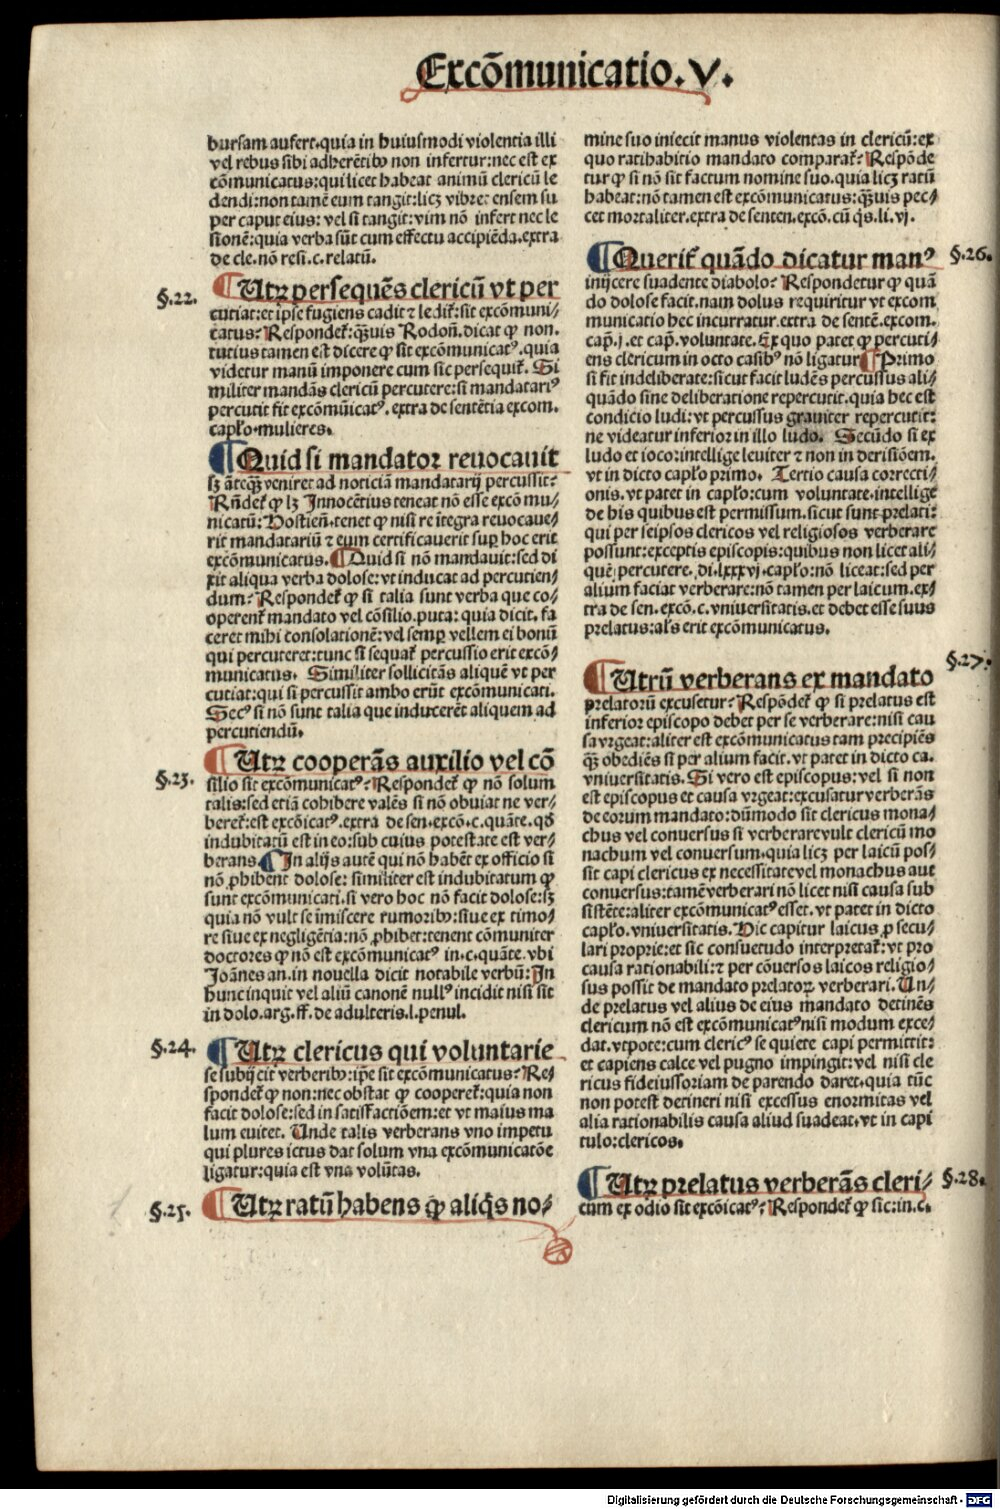 Excõmunicatio.V.
bursam aufert.quia in huiusmodi violentia illi
vel rebus sibi adherẽtibꝰ non infertur:nec est ex
cõmunicatus:qui licet habeat animũ clericũ le
dendi:non tamẽ eum tangit:licꝫ vibret ensem su
per caput eius: vel si tangit:vim nõ infert nec le
sionẽ:quia verba sũt cum effectu accipiẽda.extra
de cle.nõ resi.c.relatũ.
§.22.
¶Utꝝ persequẽs clericũ vt per
cutiat:et ip̃e fugiens cadit ⁊ ledit̃:sit excõmuni/
catus? Respondet̃:q̃uis Rodoñ.dicat ꝙ non.
tutius tamen est dicere ꝙ sit excõmunicatꝰ.quia
videtur manũ imponere cum sic persequit̃. Si
militer mandãs clericũ percutere:si mandatariꝰ
percutit fit excõmũicatꝰ. extra de sentẽtia excom.
cap̃lo.mulieres.
¶Quid si mandator reuocauit
sꝫ ãteq̃ꝫ veniret ad noticiã mandatarij percussit?
Rñdet̃ ꝙ lꝫ Innocẽtius teneat nõ esse excõ mu/
nicatũ: Hostieñ.tenet ꝙ nisi re ĩtegra reuocaue/
rit mandatariũ ⁊ eum certificauerit suꝑ hoc erit
excõmunicatus. ¶Quid si nõ mandauit:sed di
xit aliqua verba dolose: vt inducat ad percutien/
dum? Respondet̃ ꝙ si talia sunt verba que co/
operent̃ mandato vel cõsilio.puta: quia dicit. fa
ceret mihi consolationẽ: vel semꝑ vellem ei bonũ
qui percuteret:tunc si sequat̃ percussio erit excõ/
municatus. Similiter sollicitãs aliquẽ vt per
cutiat:qui si percussit ambo erũt excõmunicati.
Secꝰ si nõ sunt talia que inducerẽt aliquem ad
percutiendũ.
§.23.
¶Utꝝ cooperãs auxilio vel cõ
silio sit excõmunicatꝰ? Respondet̃ ꝙ nõ solum
talis:sed etiã cohibere valẽs si nõ obuiat ne ver/
beret̃:est excõicatꝰ.extra de sen.excõ.c.quãte.qð
indubitatũ est in eo:sub cuius potestate est ver/
berans.¶In alijs autẽ qui nõ habẽt ex officio si
nõ ꝓhibent dolose: similiter est indubitatum ꝙ
sunt excõmunicati.si vero hoc nõ facit dolose:sꝫ
quia nõ vult se ĩmiscere rumoribꝰ:siue ex timo/
re siue ex negligẽtia:nõ ꝓhibet:tenent cõmuniter
doctores ꝙ nõ est excõmunicatꝰ in.c.quãte.vbi
Joãnes an.in nouella dicit notabile verbũ: In
hunc inquit vel aliũ canonẽ nullꝰ incidit nisi sit
in dolo.arg.ff.de adulteris.l.penul.
§.24.
¶Utꝝ clericus qui voluntarie
se subijcit verberibꝰ:ip̃e sit excõmunicatus? Re/
spondet̃ ꝙ non:nec obstat ꝙ cooperet̃:quia non
facit dolose:sed in satisfactiõem:et vt maius ma
lum euitet. Unde talis verberans vno impetu
qui plures ictus dat solum vna excõmunicatõe
ligatur:quia est vna volũtas.
§.25.
¶Utꝝ ratũ habens ꝙ aliq̃s no/
mine suo iniecit manus violentas in clericũ:ex
quo ratihabitio mandato comparat̃? Respõde
tur ꝙ si nõ sit factum nomine suo.quia licꝫ ratũ
habeat:nõ tamen est excõmunicatus:q̃uis pec/
cet mortaliter.extra de senten.excõ.cũ q̃s.li.vj.
§.26.
¶Querit̃ quãdo dicatur manꝰ
inijcere suadente diabolo? Respondetur ꝙ quã
do dolose facit.nam dolus requiritur vt excom
municatio hec incurratur.extra de sentẽ.excom.
cap̃.j.et cap̃.voluntate.Ex quo patet ꝙ percuti/
ens clericum in octo casibꝰ nõ ligatur¶Primo
si fit indeliberate:sicut facit ludẽs percussus ali/
quãdo sine deliberatione repercutit.quia hec est
condicio ludi:vt percussus grauiter repercutit:
ne videatur inferior in illo ludo. Secũdo si ex
ludo et ioco:intellige leuiter ⁊ non in derisiõem.
vt in dicto cap̃lo primo. Tertio causa correcti/
onis.vt patet in cap̃lo:cum voluntate.intellige
de his quibus est permissum.sicut sunt prelati:
qui per seipsos clericos vel religiosos verberare
possunt:exceptis episcopis:quibus non licet ali/
quẽ percutere.di.lxxxvj.cap̃lo:nõ liceat:sed per
alium faciat verberare:nõ tamen per laicum.ex/
tra de sen.excõ.c.vniuersitatis.et debet esse suus
prelatus:al̃s erit excõmunicatus.
§.27.
¶Utrũ verberans ex mandato
prelatorũ excusetur? Respõdet̃ ꝙ si prelatus est
inferior episcopo debet per se verberare:nisi cau
sa vrgeat:aliter est excõmunicatus tam precipiẽs
q̃ꝫ obediẽs si per alium facit.vt patet in dicto ca.
vniuersitatis. Si vero est episcopus: vel si non
est episcopus et causa vrgeat:excusatur verberãs
de eorum mandato: dũmodo sit clericus mona/
chus vel conuersus si verberare vult clericũ mo
nachum vel conuersum.quia licꝫ per laicũ pos/
sit capi clericus ex necessitate vel monachus aut
conuersus:tamẽ verberari nõ licet nisi causa sub
sistẽte:aliter excõmunicatꝰ esset.vt patet in dicto
cap̃lo.vniuersitatis. Hic capitur laicus ꝓ secu/
lari proprie:et sic consuetudo interpretat̃: vt pro
causa rationabili:⁊ per cõuersos laicos religio/
sus possit de mandato prelatoꝝ verberari. Un/
de prelatus vel alius de eius mandato detinẽs
clericum nõ est excõmunicatꝰ nisi modum exce/
dat.vtpote:cum clericꝰ se quiete capi permittit:
et capiens calce vel pugno impingit: vel nisi cle
ricus fideiussoriam de parendo daret.quia tũc
non potest detineri nisi excessus enormitas vel
alia rationabilis causa aliud suadeat.vt in capi
tulo:clericos.
§.28.
¶Utꝝ prelatus verberãs cleri/
cum ex odio sit excõicatꝰ? Respondet̃ ꝙ sic:in.c.
Digitalisierung gefördert durch die Deutsche Forschungsgemeinschaft - DFG